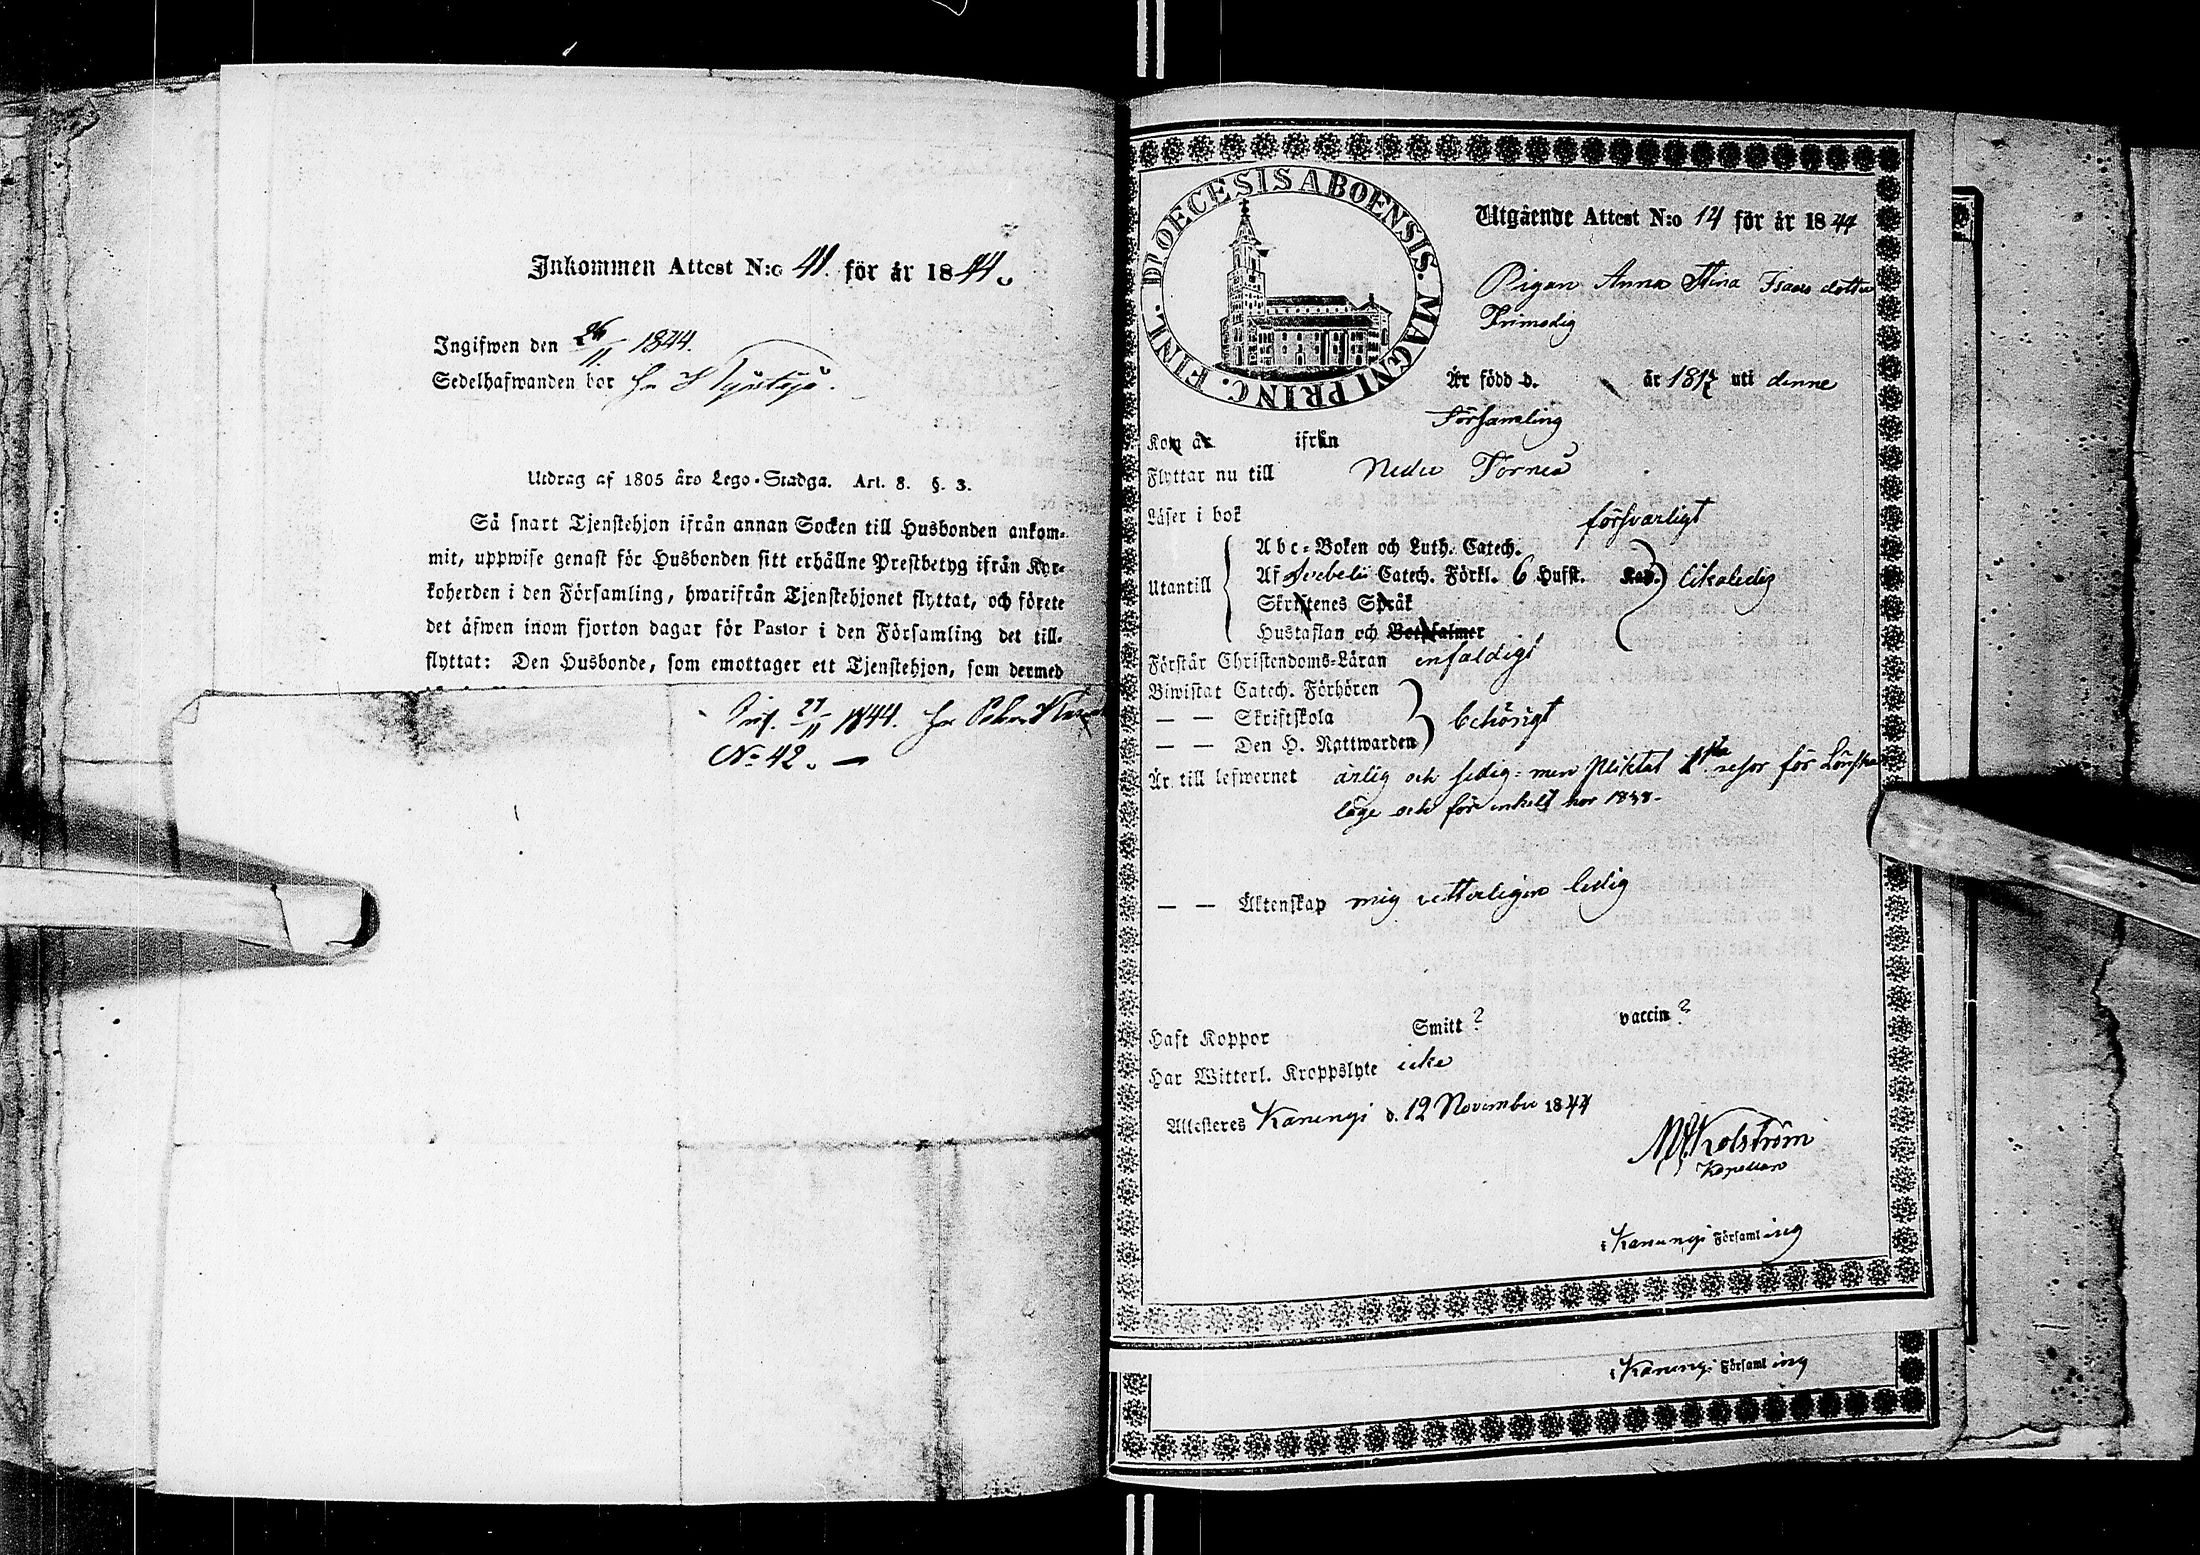 Inkommen Attest N:o 41. för år 1844.
Ingifwen den 26/11 1844.
Sedelhafwanden bor
Utdrag af 1805 års Lego-Stadga. Art. 8. §. 3.
Så snart Tjenstehjon ifrån annan Socken till Husbonden ankom-
mit, uppwise genast för Husbonden sitt erhållne Prestbetyg ifrån Kyr-
koherden i den Församling, hwarifrån Tjenstehjonet flyttat, och förete
det äfwen inom fjorton dagar för Pastor i den Församling det till-
flyttat: Den Husbonde, som emottager ett Tjenstehjon, som dermed
27/11 1844.
No 42.
DIOECESIS ABOENSIS. MAGNI PRINC. FINL.
Utgående Attest N:o 14 för år 1844
Pigan Anna Stina Isaacs dotter
Är född d. år 1817 uti denne
Församling
Kom år ifrån
Flyttar nu till Neder Torneå
Läser i bok försvarligt
Utantill
Abc-Boken och Luth. Catech.
Af Svebelii Catech. Förkl. 6 Hufst. Kap. likaledes
Skriftenes Språk
Hustaflan och Botpsalmer
Förstår Christendoms-Läran enfaldigt
Biwistat Catech. Förhören
— — Skriftskola behörigt
— — Den H. Nattwarden
Är till lefwernet ärlig och sedig: men pliktat 1sta resor för Lönska
läge och för enkelt hor 1838.
— — Äktenskap mig vetterligen ledig
Haft Koppor Smitt? vaccin?
Har Witterl. Kroppslyte icke
Attesteres Karungi d. 12 November 1844
Kolström
Kapellan
i Karungi Församling
i Karungi Församling